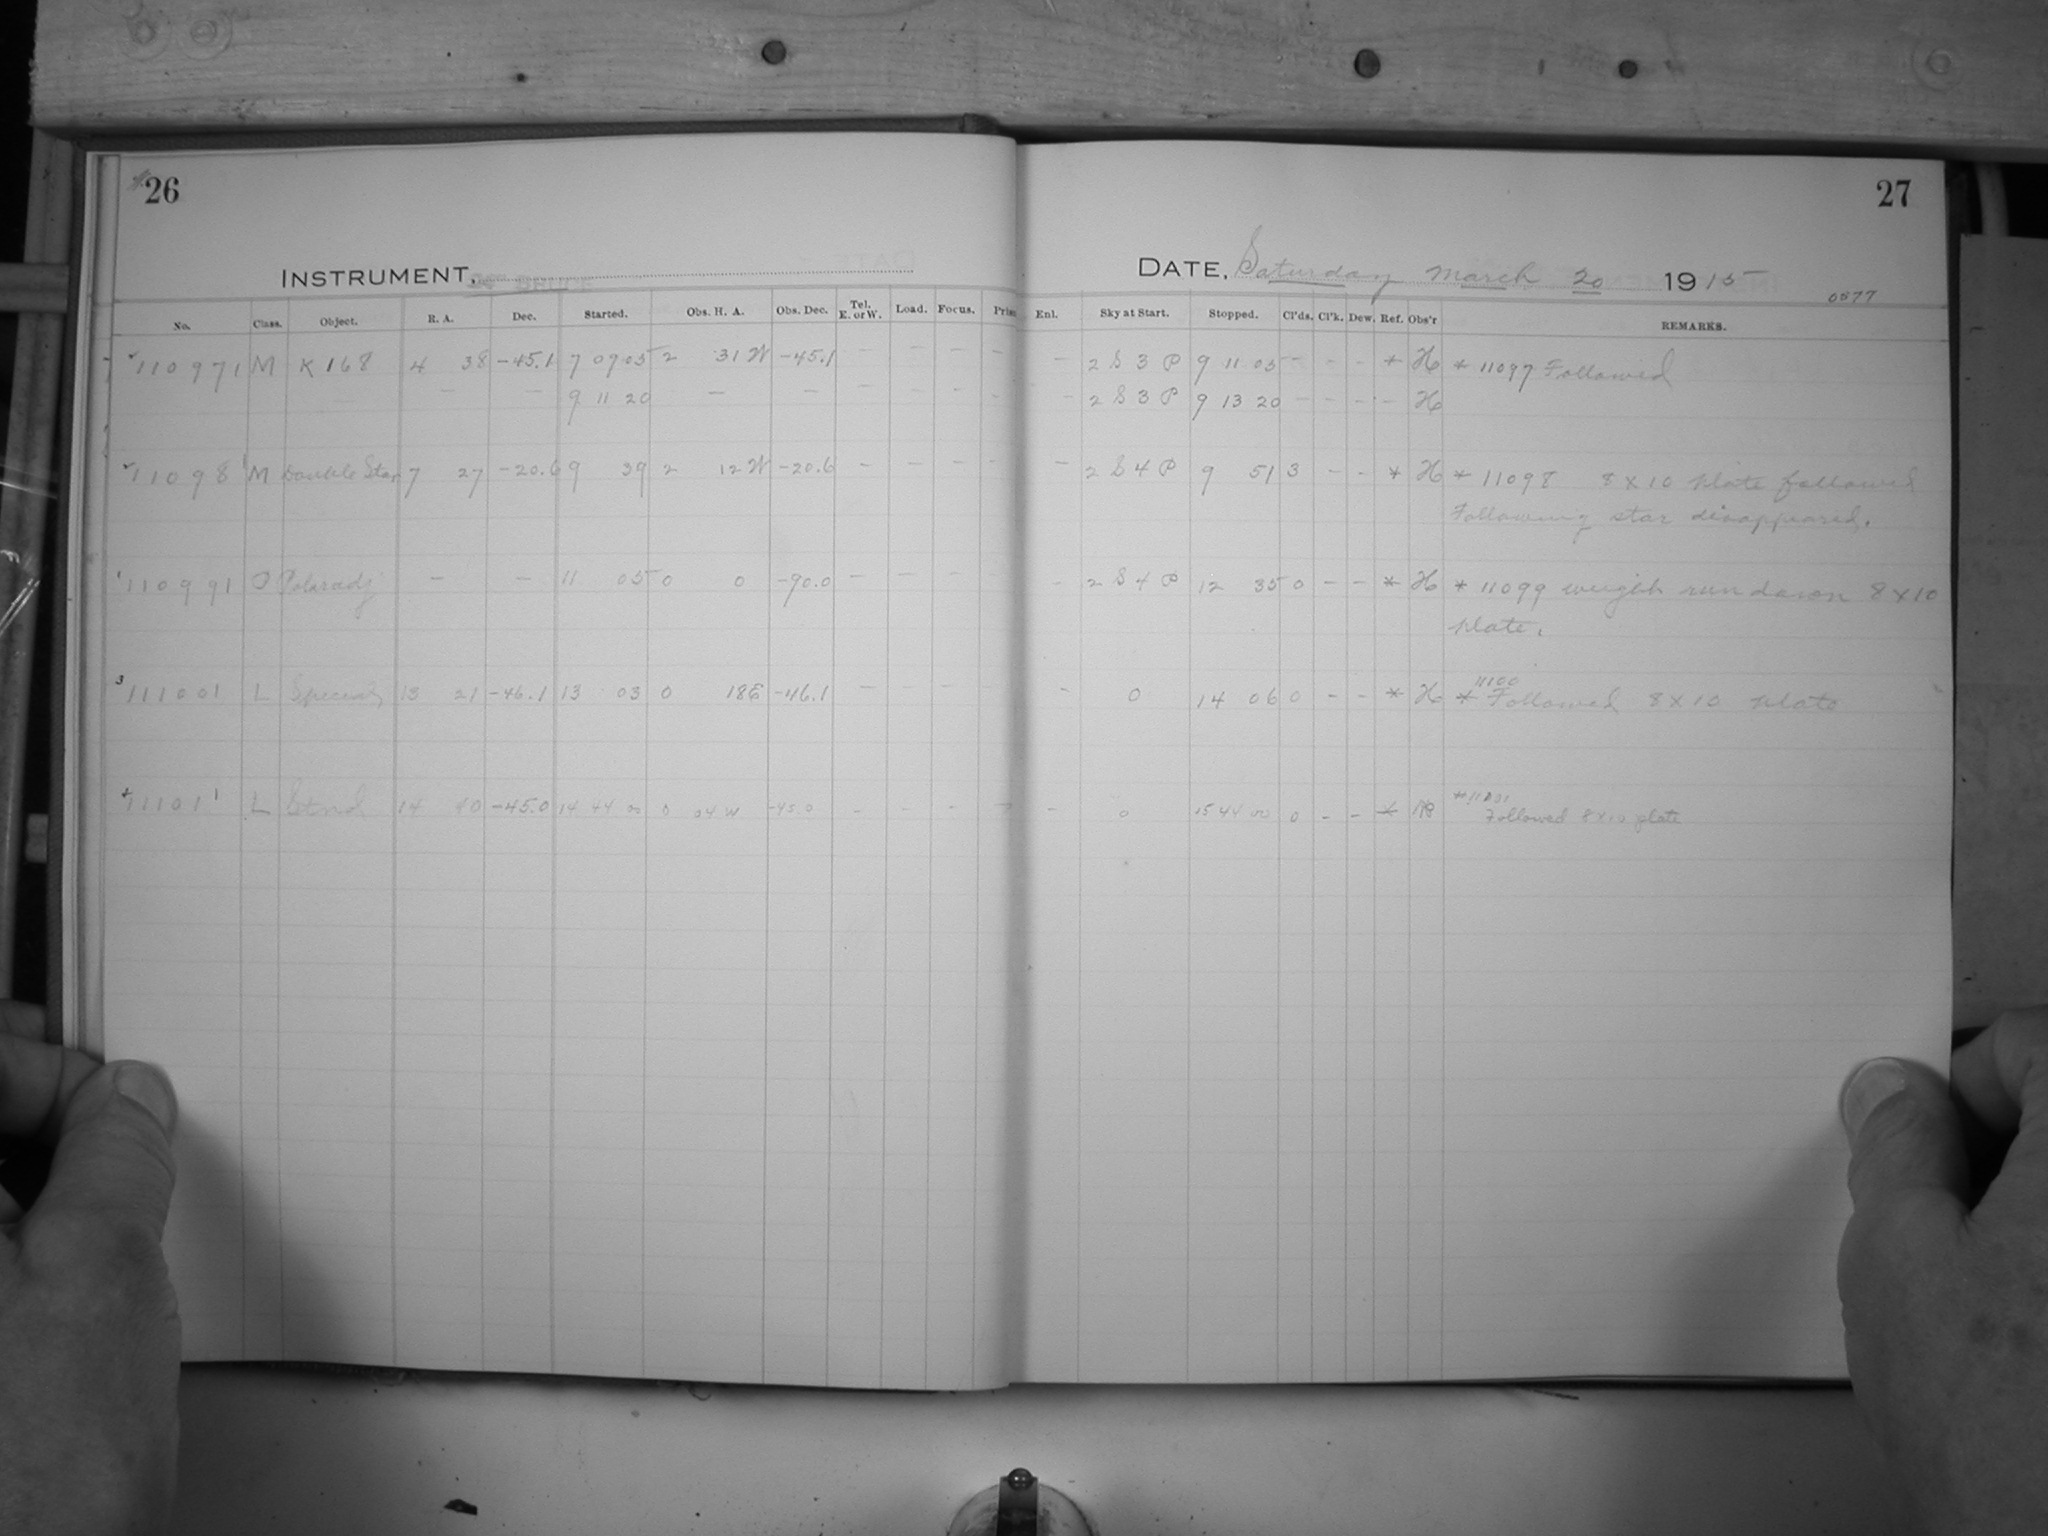 26
27
INSTRUMENT,
DATE, Saturday March 20 1915
0577
No. Class. Object. R. A. Dec. Started. Obs. H. A. Obs. Dec. Tel. E. or W. Load. Focus. Enl. Sky at Start. Stopped. Cl'ds. Cl'k. Dew. Ref. Obs'r REMARKS.
11097 1 M K 168 4 38 -45.1 7 09 05 2 31 W -45.1 - - - - - 2 S 3 P 9 11 05 - - - * H * 11097 Followed
- - - 9 11 20 - - - - - - - 2 S 3 P 9 13 20 - - - - H
11098 1 M Double Star 7 27 -20.6 9 39 2 12 W -20.6 - - - - - 2 S 4 P 9 51 3 - - * H * 11098 8 x 10 plate followed
Following star disappeared.
11099 1 O Polaradj - - 11 05 0 0 -90.0 - - - - 2 S 4 P 12 35 0 - - * H * 11099 weight run down 8 x 10
plate.
11100 1 L Special 13 21 -46.1 13 03 0 18 E -46.1 - - - - - 0 14 06 0 - - * H * 11100 Followed 8 x 10 plate
11101 1 L 14 40 -45.0 14 44 00 0 04 W -45.0 - - - - - - 0 15 44 00 0 - - * * 11101
Followed 8x10 plate